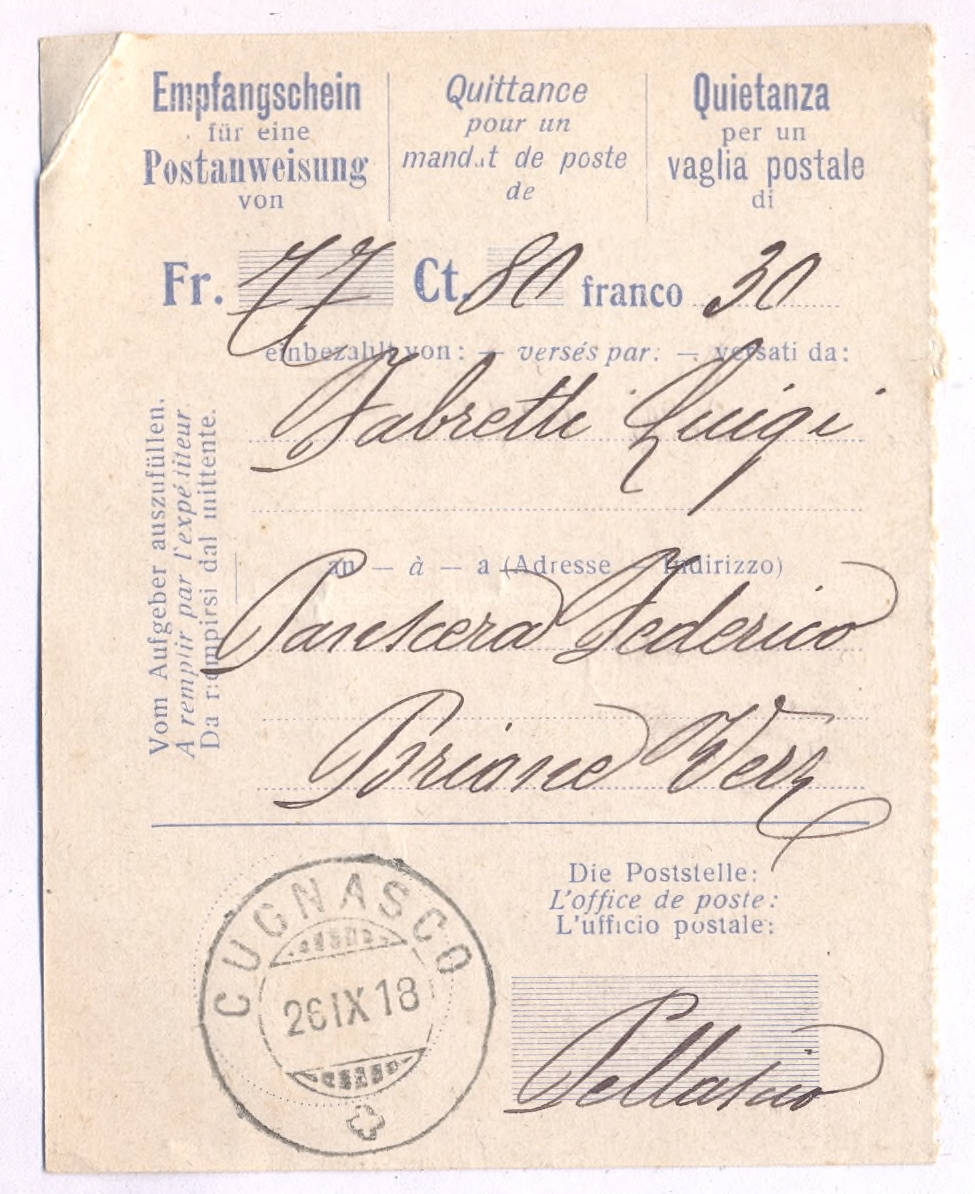 Empfangschein
für eine
Postanweisung
von
Quittance
pour un
mandat de poste
de
Quietanza
per un
vaglia postale
di
Fr. 77 Ct. 80 franco 30
einbezahlt von: — versés par: — versati da:
Fabretti Luigi
an — à — a (Adresse – Indirizzo)
Federico
Brione Verz
Vom Aufgeber auszufüllen.
A remplir par l'expéditeur
Da riempirsi dal mittente.
Die Poststelle:
L'office de poste:
L'ufficio postale:
CUGNASCO
26 IX 18